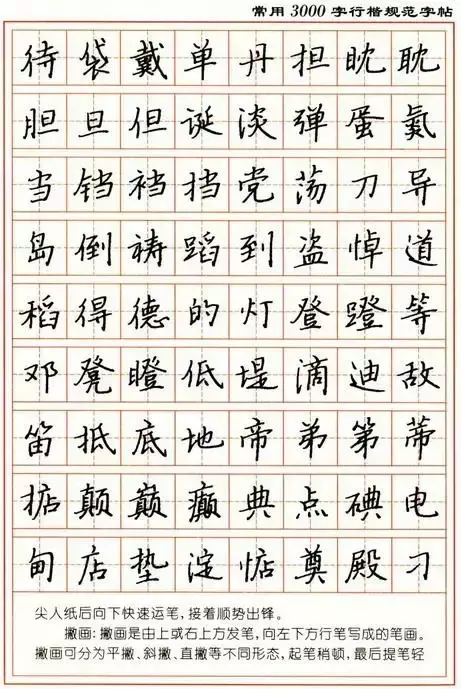 常用3000字行楷规范字帖
待袋戴单丹担眈耽
胆旦但诞淡弹蛋氮
当铛裆挡党荡刀导
岛倒祷蹈到盗悼道
稻得德的灯登蹬等
邓凳瞪低堤滴迪敌
笛抵底地帝弟第蒂
掂颠巅癫典点碘电
甸店垫淀惦奠殿刁
尖人纸后向下快速运笔，接着顺势出锋。
撇画：撇画是由上或右上方发笔，向左下方行笔写成的笔画。
撇画可分为平撇、斜撇、直撇等不同形态，起笔稍顿，最后提笔轻